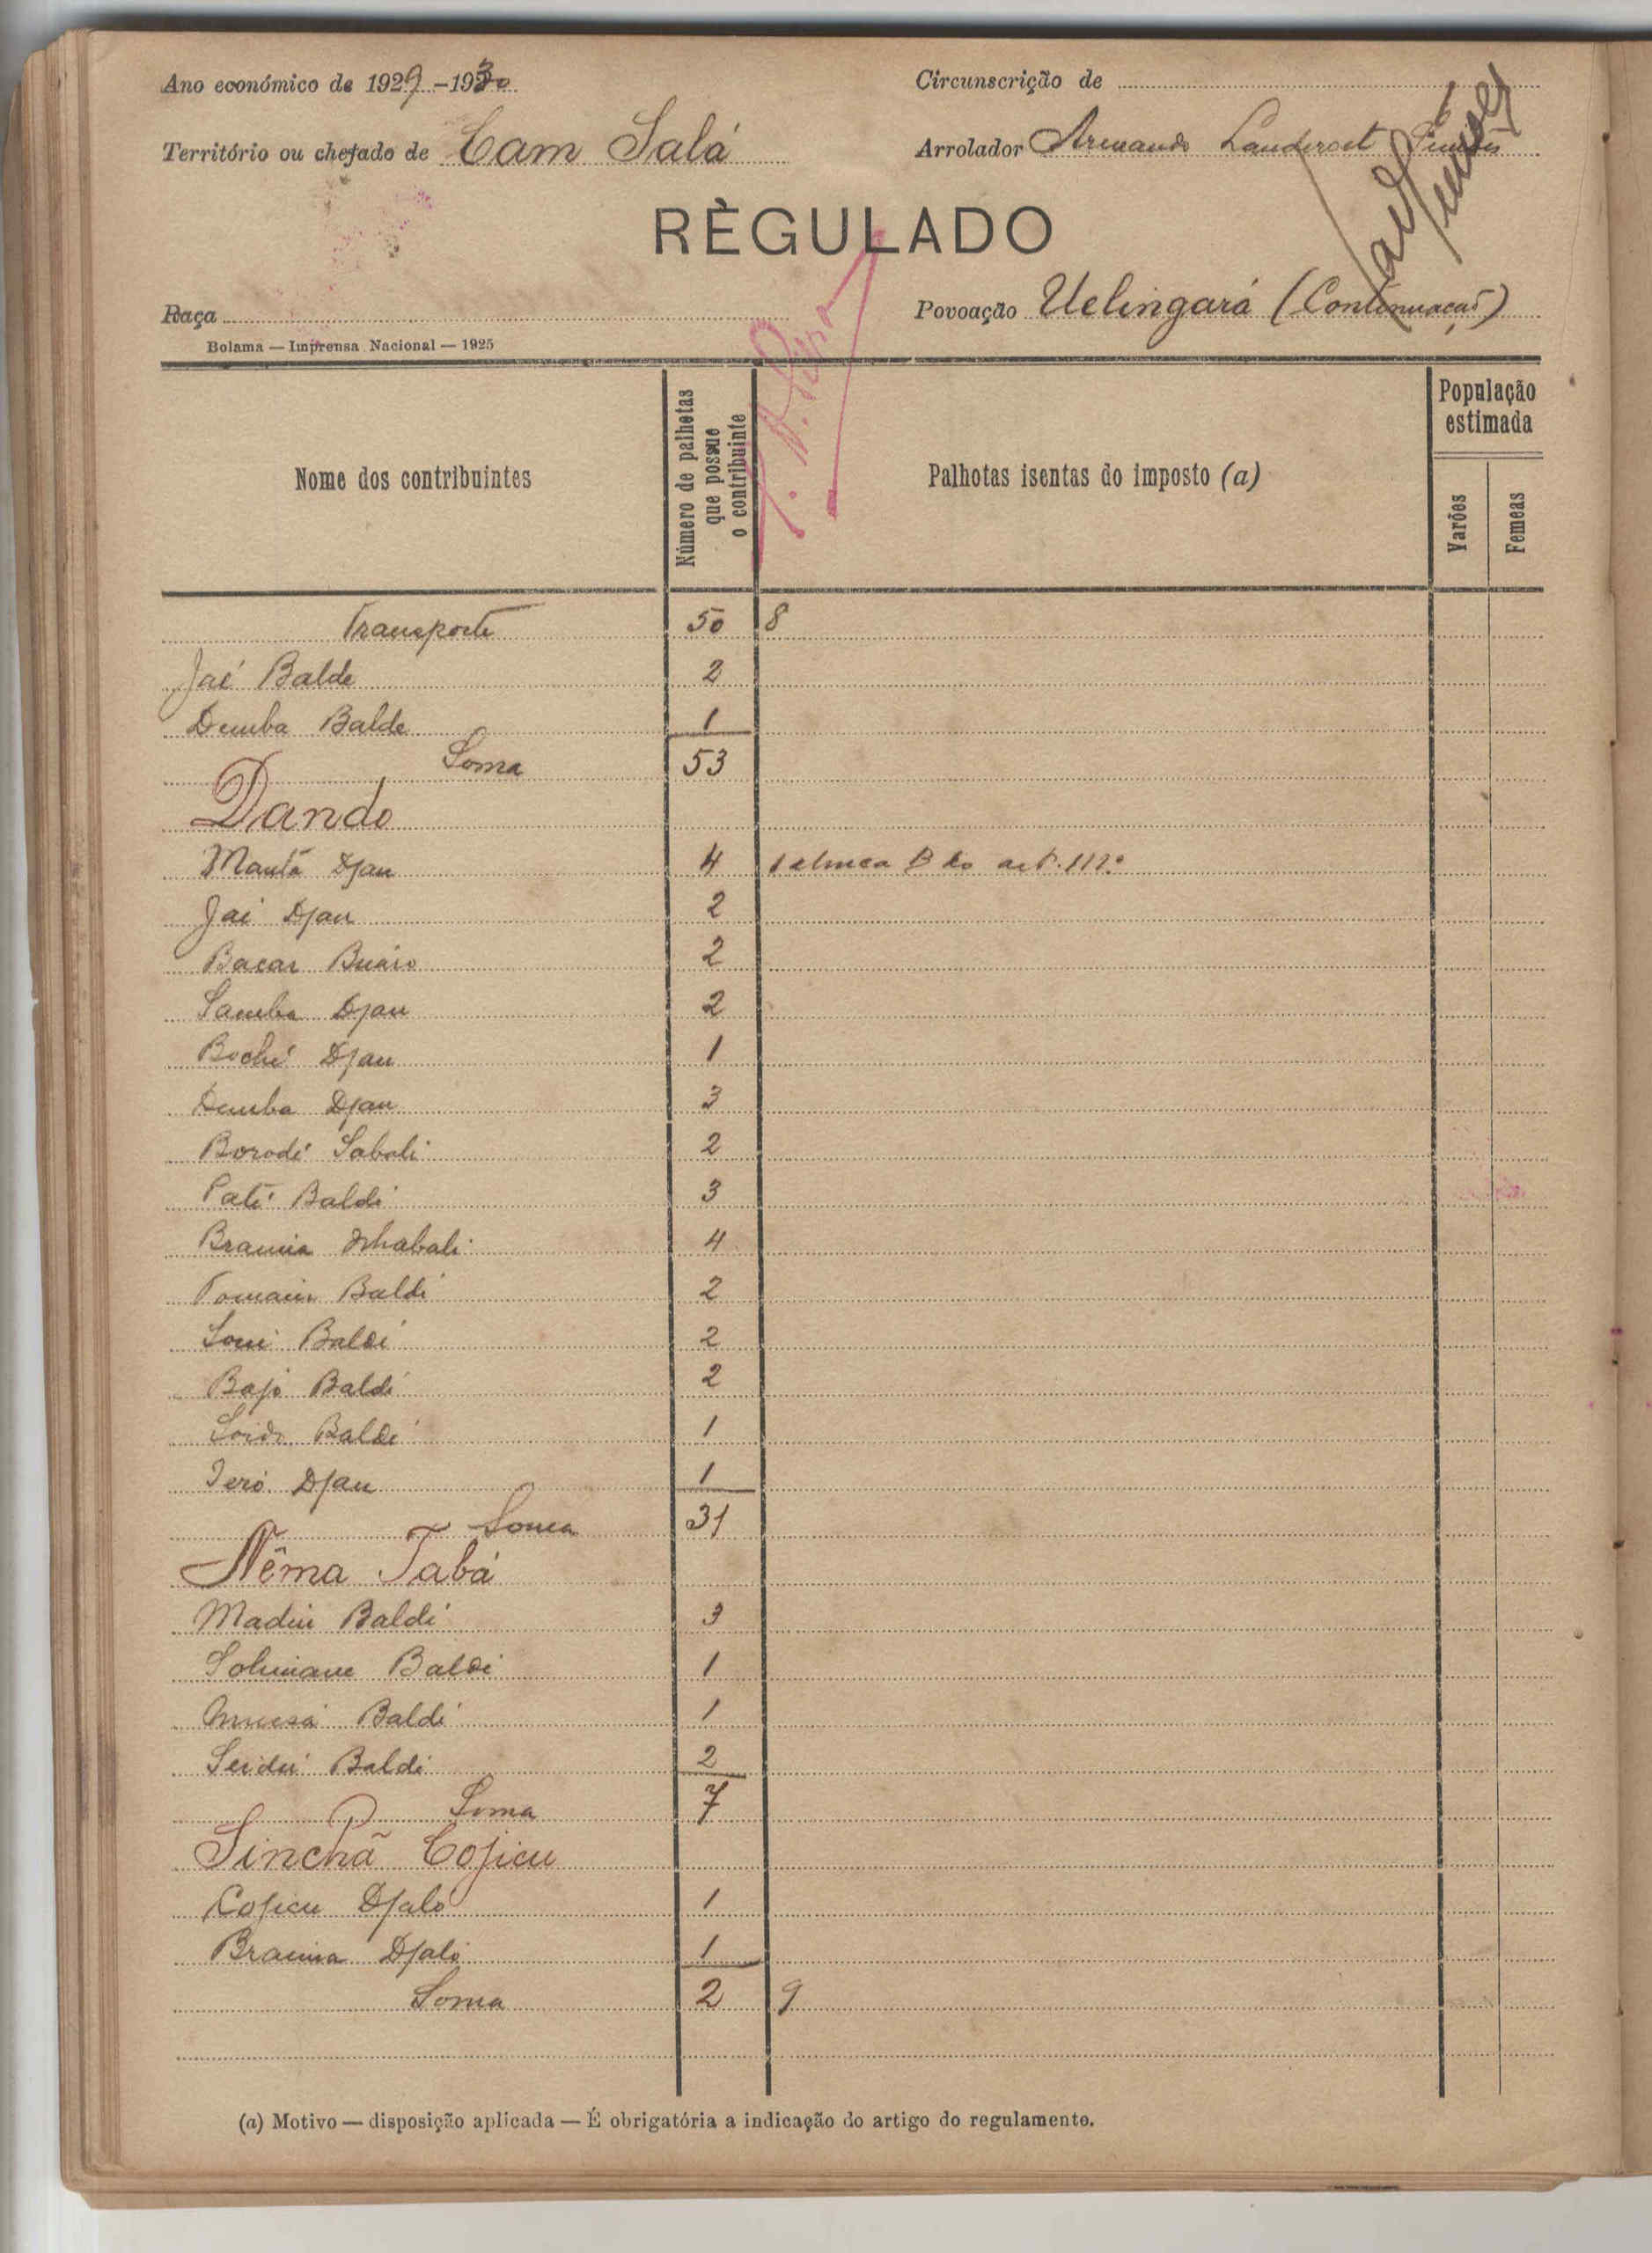 Ano económico de 1929-1930
Circunscrição de
Território ou chefado de Cam Salá
Arrolador Armando Landerset Simões
RÈGULADO
Raça
Povoação Uelingará (Continuação)
Bolama — Imprensa Nacional — 1925
Nome dos contribuintes
Número de palhotas que possue o contribuinte
Palhotas isentas do imposto (a)
População estimada
Varões
Femeas
Transporte 50 8
Jaé Balde 2
Demba Balde 1
Soma 53
Dando
Mantá Djau 4 1 alinea B do art. 112.º
Jai Djau 2
Bacar Buaro 2
Samba Djau 2
Boché Djau 1
Demba Djau 3
Borodé Sabali 2
Paté Baldé 3
Braima 4
Baldé 2
Baldé 2
Bajo Baldé 2
Baldé 1
Djau 1
Soma 31
Nêma Tabá
Madiu Baldé 3
Solimane Baldé 1
Baldé 1
Seidú Baldé 2
Soma 7
Sinchã Cojicu
Cojicu Djaló 1
Braima Djaló 1
Soma 2 9
(a) Motivo — disposição aplicada — É obrigatória a indicação do artigo do regulamento.